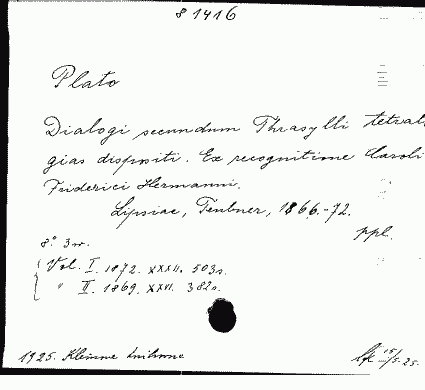 8 1416
Plato
Dialogi secundum Thrasylli tetral
gias dispositi. Ex recognitione Caroli
Friderici Hermanni.
Lipsiae, Teubner, 1866.-72.
ppl.
8°. 3 sv.
Vol. I. 1872. XXXII. 503 s.
" II. 1869. XXVI. 382 s.
1925. Klein